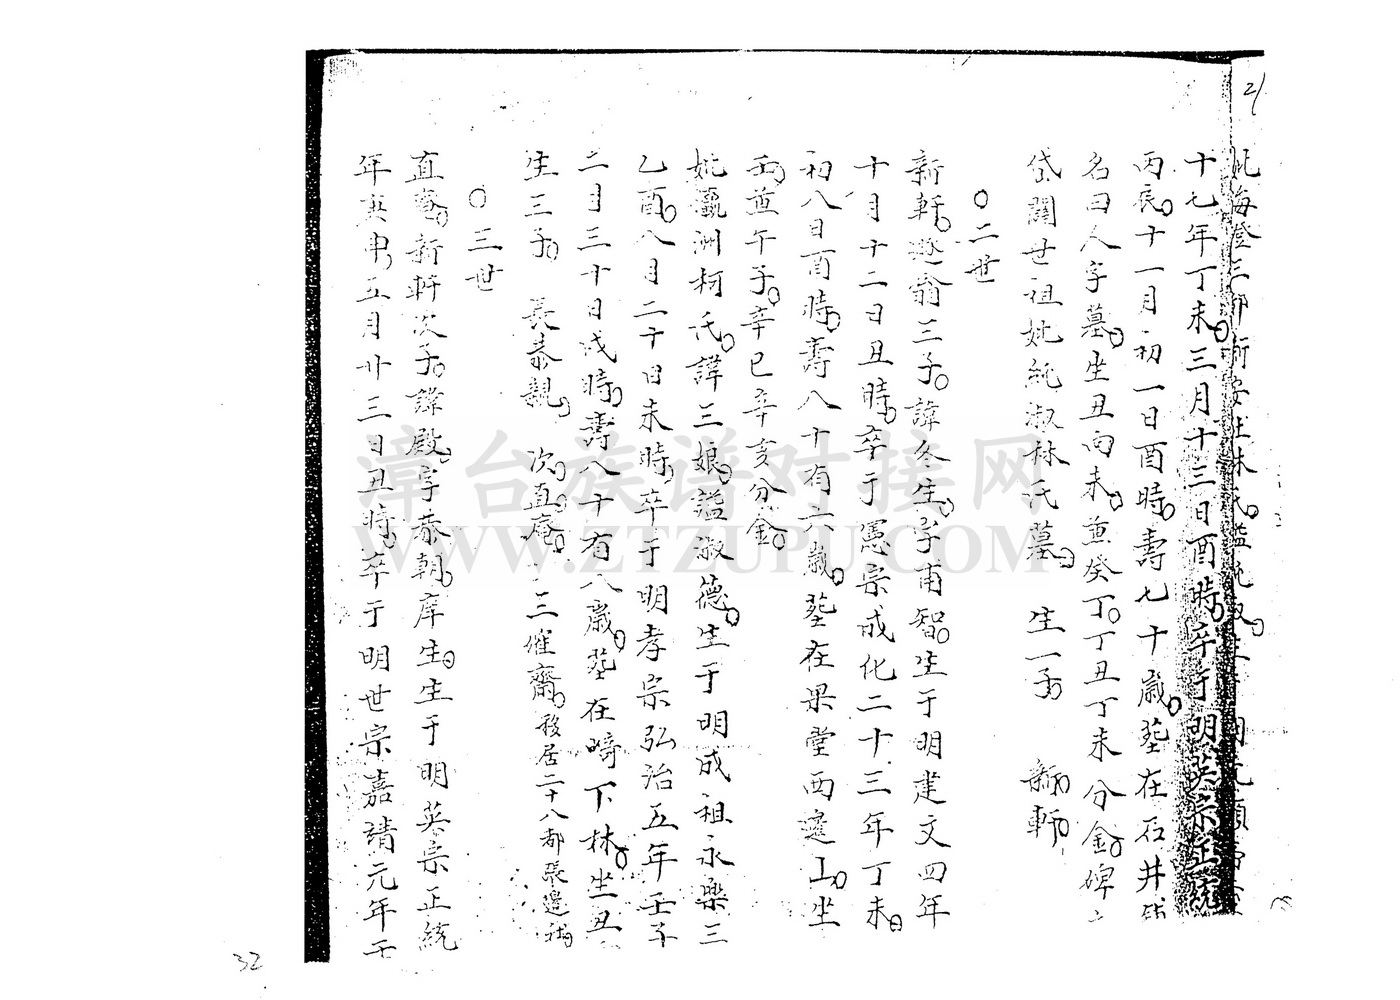 21
妣海澄三都新安社林氏諡純淑生于明
十七年丁未三月十三日酉時卒于明英宗正統
丙辰十一月初一日酉時壽七十歲塟在石井
名曰人字墓坐丑向未兼癸丁丁丑丁未分金碑
岱閣世祖妣純淑林氏墓 生一子 新軒
○二世
新軒遯翁三子諱冬生字甫智生于明建文四年
十月十二日丑時卒于憲宗成化二十三年丁未
初八日酉時壽八十有六歲塟在果堂西邊山坐
壬兼午子辛巳辛亥分金
妣瀛洲柯氏諱三娘諡淑德生于明成祖永樂三
乙酉八月二十日未時卒于明孝宗弘治五年壬子
二月三十日戌時壽八十有八歲塟在崎下林坐丑
生三子 長泰親 次直庵 三催齋移居二十八都張邊社
○三世
直菴新軒次子諱殿字恭朝庠生生于明英宗正統
年庚申五月廿三日丑時卒于明世宗嘉靖元年壬
32
漳台族谱对接网
WWW.ZTZUPU.COM